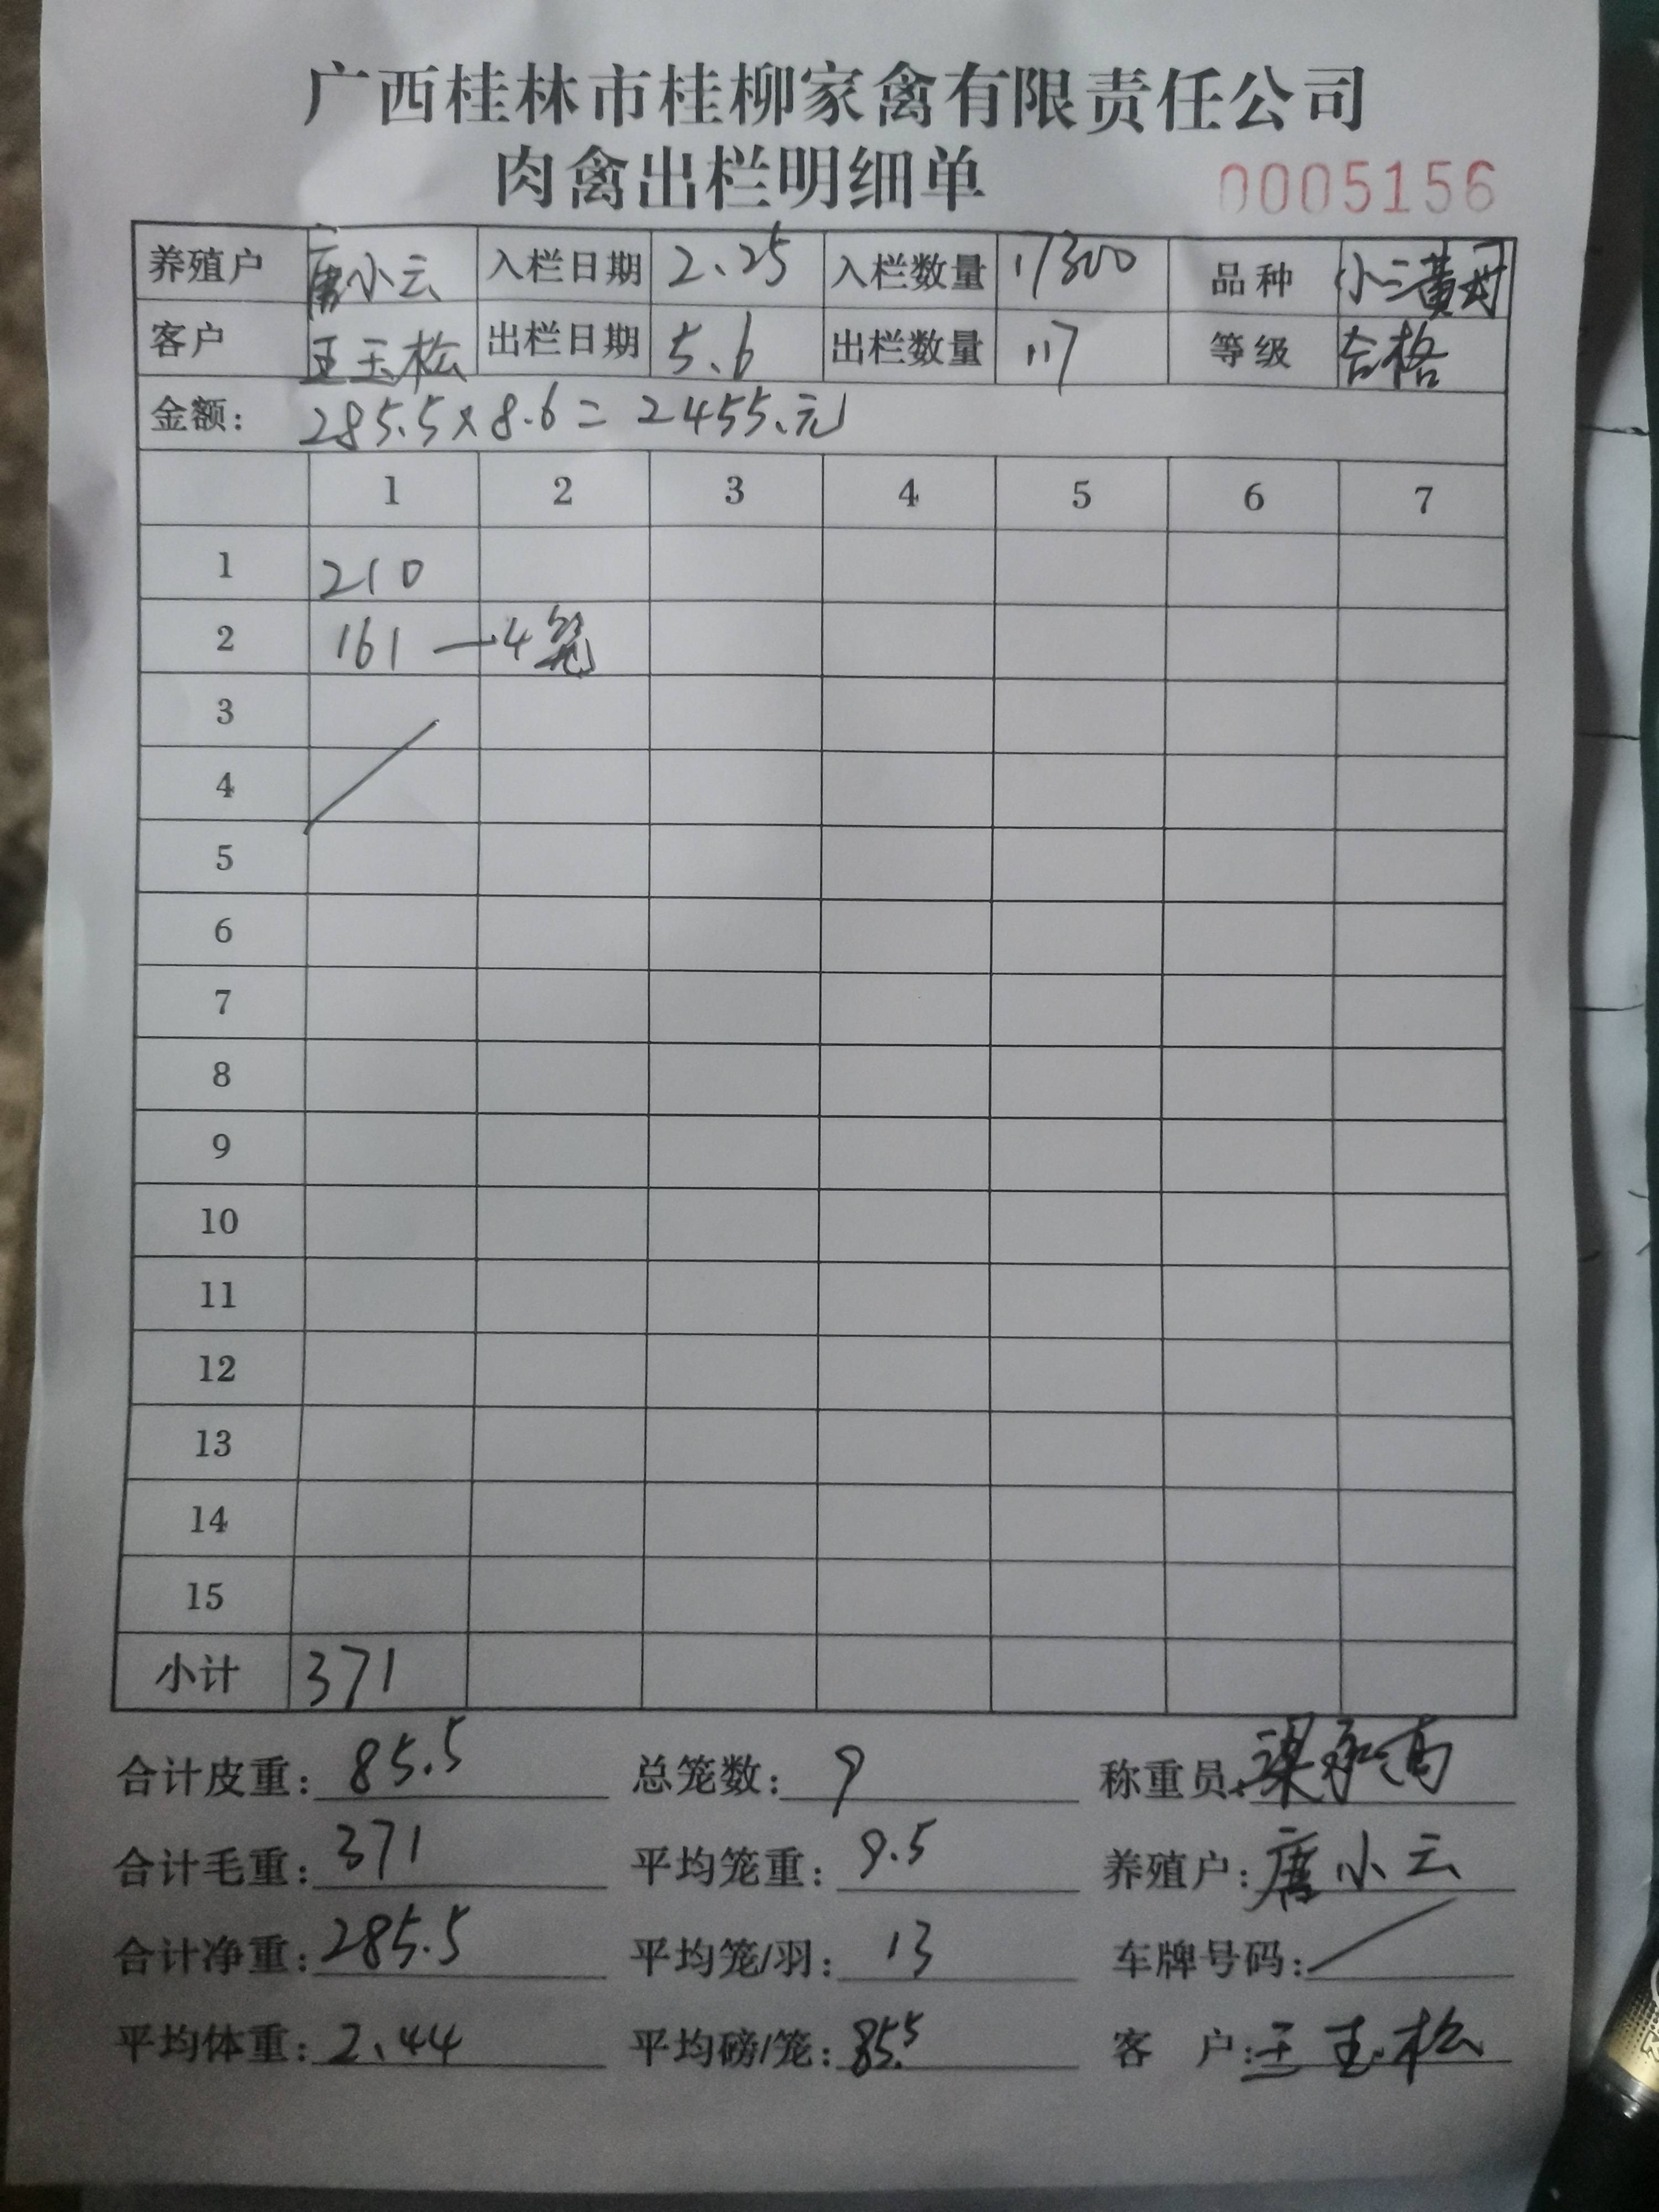 广西桂林市桂柳家禽有限责任公司
肉禽出栏明细单 0005156
养殖户 唐小云 入栏日期 2、25 入栏数量 17300 品种 小三黄母
客户 王玉松 出栏日期 5、6 出栏数量 117 等级 合格
金额： 285.5×8.6=2455、元
1 2 3 4 5 6 7
1 210
2 161 —4笼
3
4
5
6
7
8
9
10
11
12
13
14
15
小计 371
合计皮重： 85.5 总笼数： 9 称重员：
合计毛重： 371 平均笼重： 9.5 养殖户： 唐小云
合计净重： 285.5 平均笼/羽： 13 车牌号码：
平均体重： 2、44 平均磅/笼： 85.5 客户： 王玉松